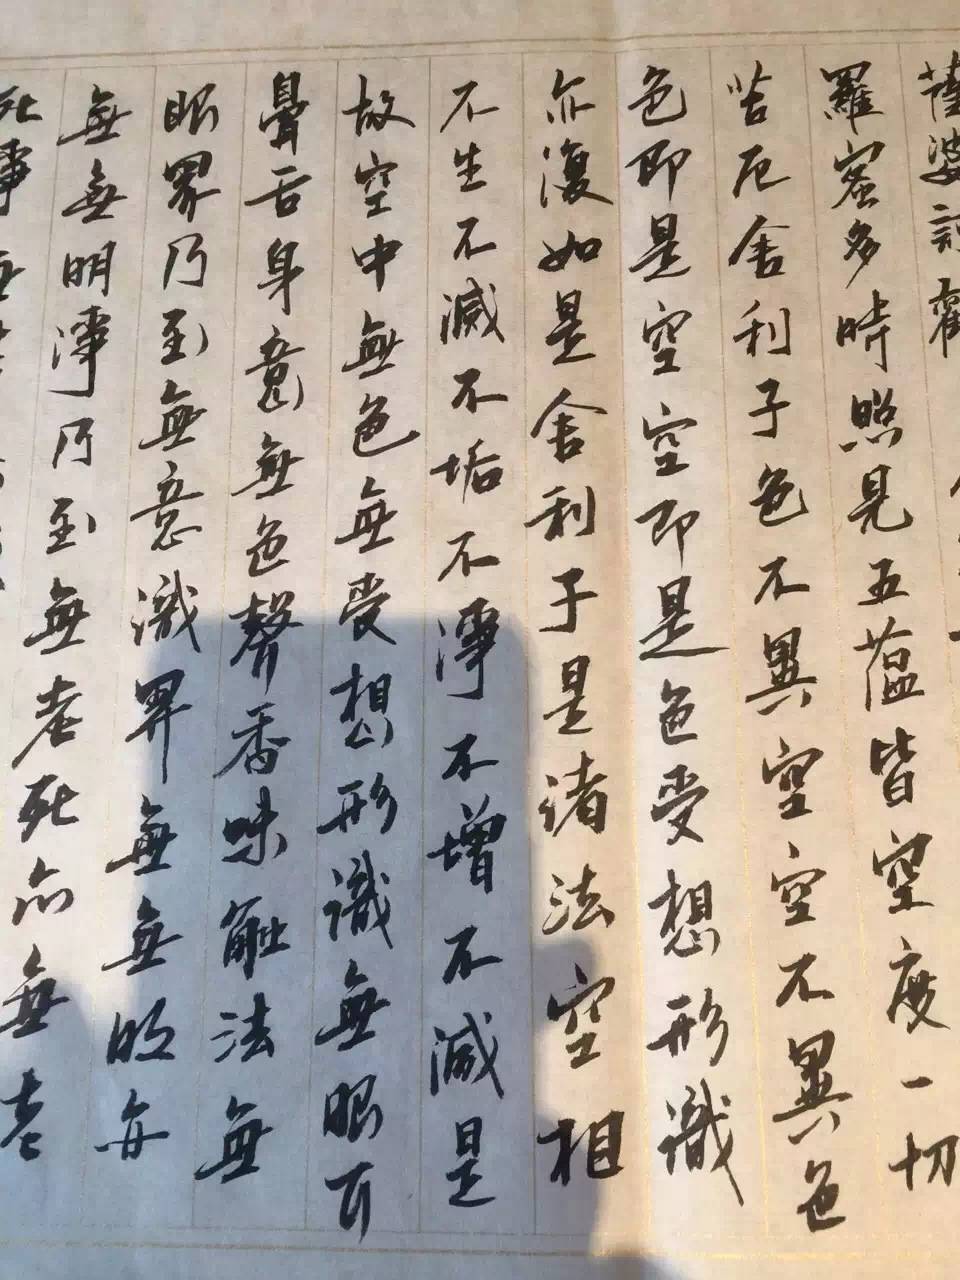 薩婆
羅蜜多時照見五蘊皆空度一切
苦厄舍利子色不異空空不異色
色即是空空即是色受想形識
亦復如是舍利子是诸法空相
不生不滅不垢不淨不增不減是
故空中無色無受想形識無眼耳
鼻舌身意無色聲香味觸法無
眼界乃至無意識界無無明亦
無無明淨乃至無老死亦無老
死